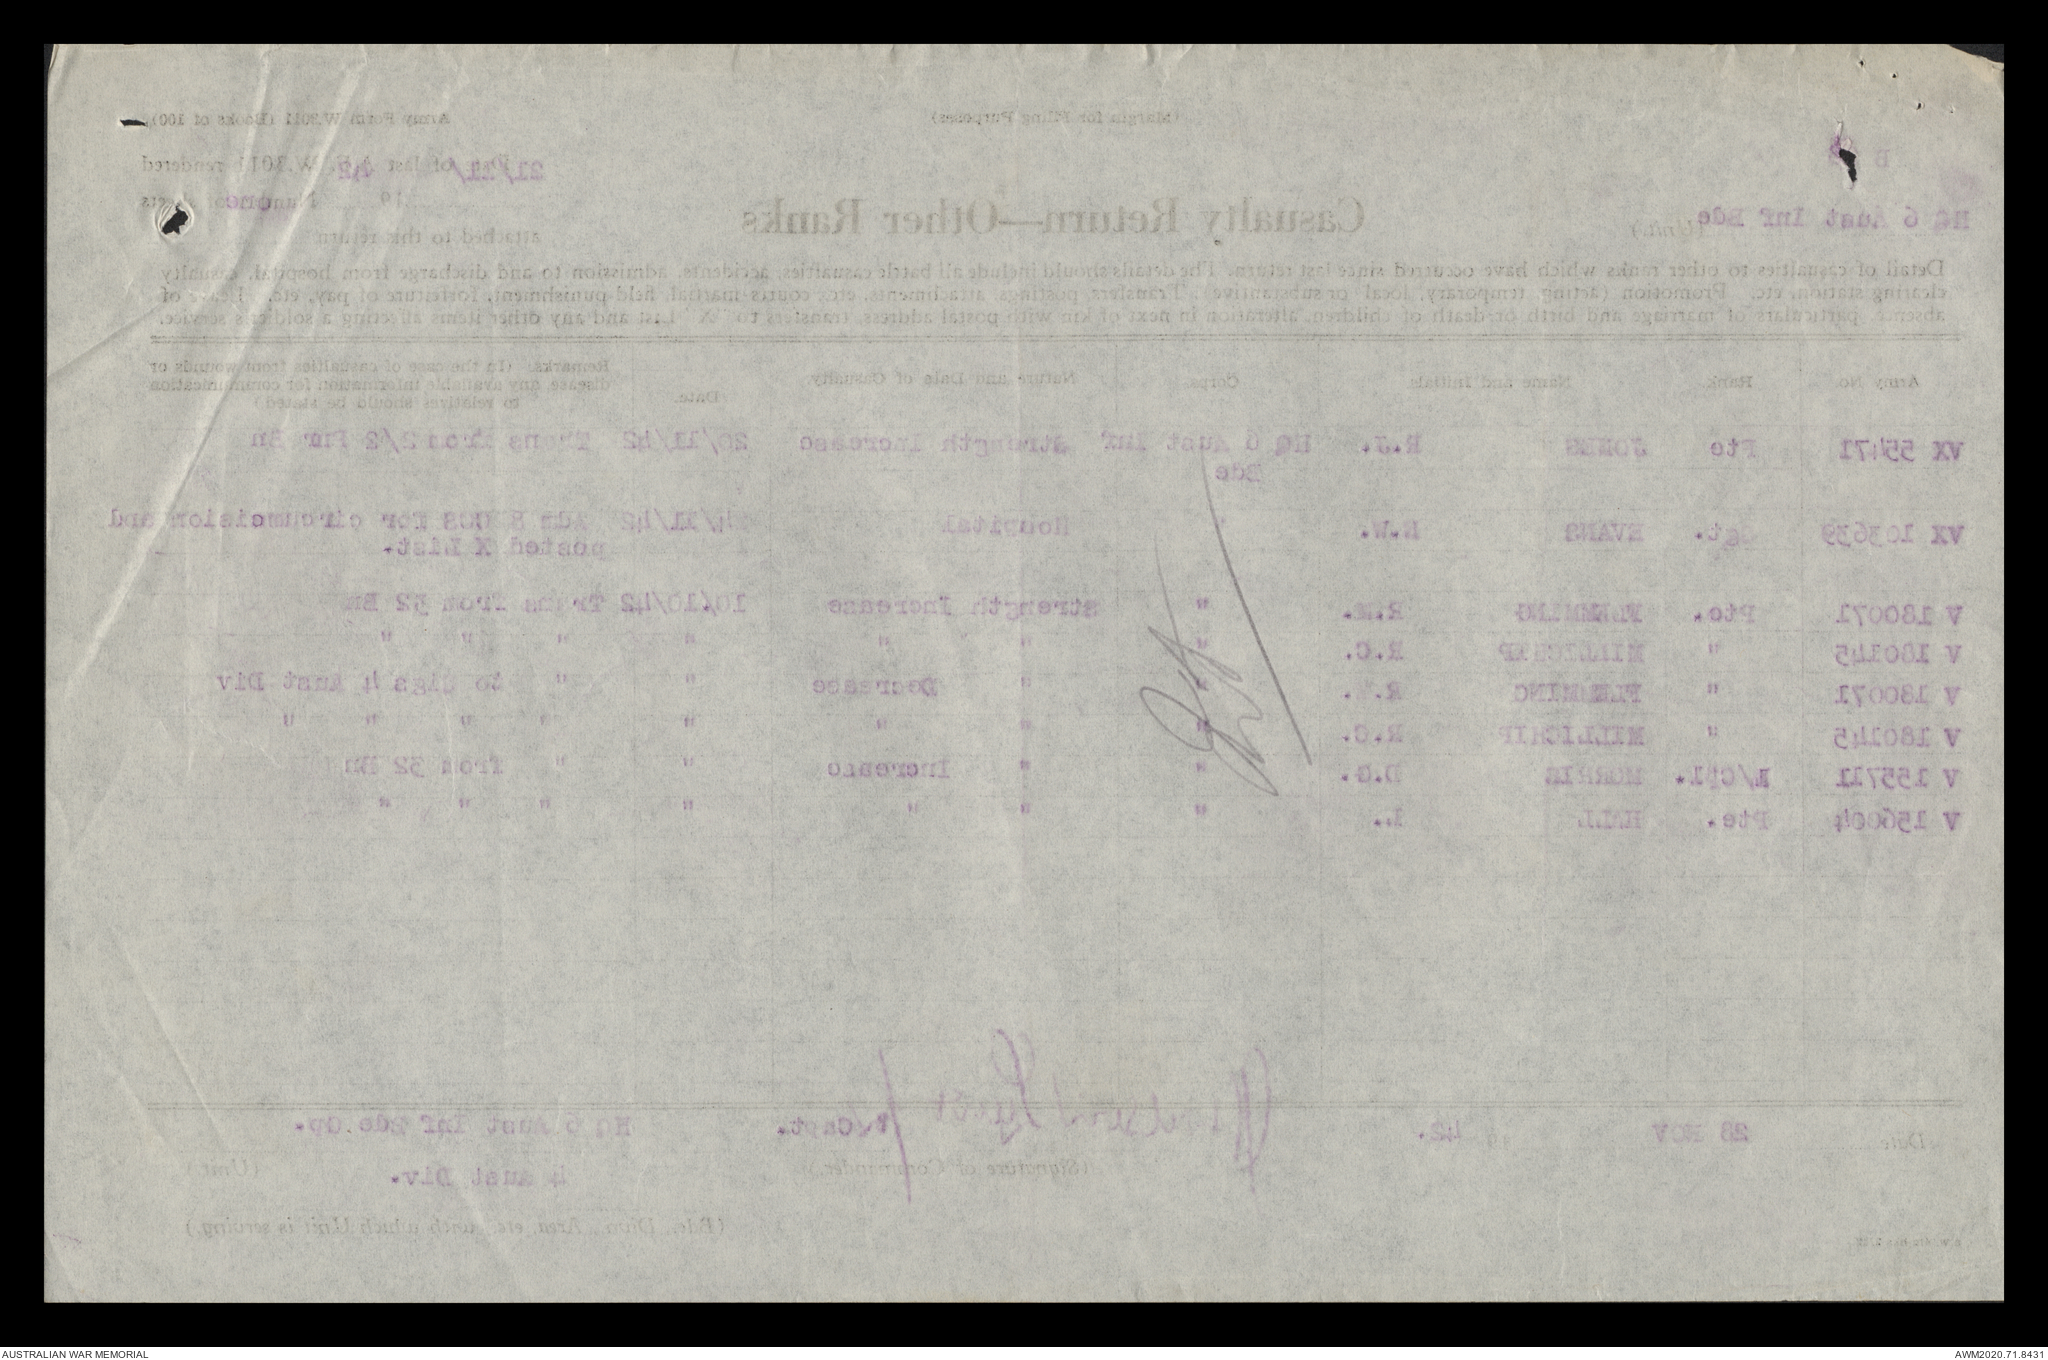 Army Form W.3011 (Books of 100).
(Margin for Filing Purposes)
B
of last W.3011 rendered 21/11/42
19
Number of sheets one
attached to this return
Casualty Return—Other Ranks
HQ 6 Aust Inf Bde (Unit.)
Detail of casualties to other ranks which have occurred since last return. The details should include all battle casualties, accidents, admission to and discharge from hospital, casualty
clearing station, etc. Promotion (acting, temporary, local or substantive). Transfers, postings, attachments, etc., courts-martial, field punishment, forfeiture of pay, etc. Leave of
absence, particulars of marriage and birth or death of children, alteration in next of kin with postal address, transfers to "X" List and any other items affecting a soldier's service.
Army No. Rank. Name and Initials Corps. Nature and Date of Casualty. Date. Remarks. (In the case of casualties from wounds or
disease, any available information for communication
to relatives should be stated.)
VX 55471 Pte JONES R.J. HQ 6 Aust Inf Strength Increase 20/11/42 Trans from 2/2 Pnr Bn
Bde
VX 103639 Sgt. EVANS E.W. " Hospital 4/11/42 Adm 8 for circumcision and
posted X List.
V 180071 Pte. FLEMMING R.M. " Strength Increase 10/10/42 Trans from 52 Bn
V 180145 " MILLICHIP R.C. " " " " " " "
V 180071 " FLEMMING R. " " Decrease " " to Sigs 4 Aust Div
V 180145 " MILLICHIP R.C. " " " " " " " "
V 155711 L/Cpl. MORRIS D.G. " " Increase " " from 52 Bn
V 156004 Pte. HALL L. " " " " " " "
Date 28 NOV 42. A/Capt. HQ 6 Aust Inf Bde Gp.
(Signature of Commander.) (Unit.)
4 Aust Div.
(Bde., Divn., Area, etc., with which Unit is serving.)
AUSTRALIAN WAR MEMORIAL
AWM2020.71.8431